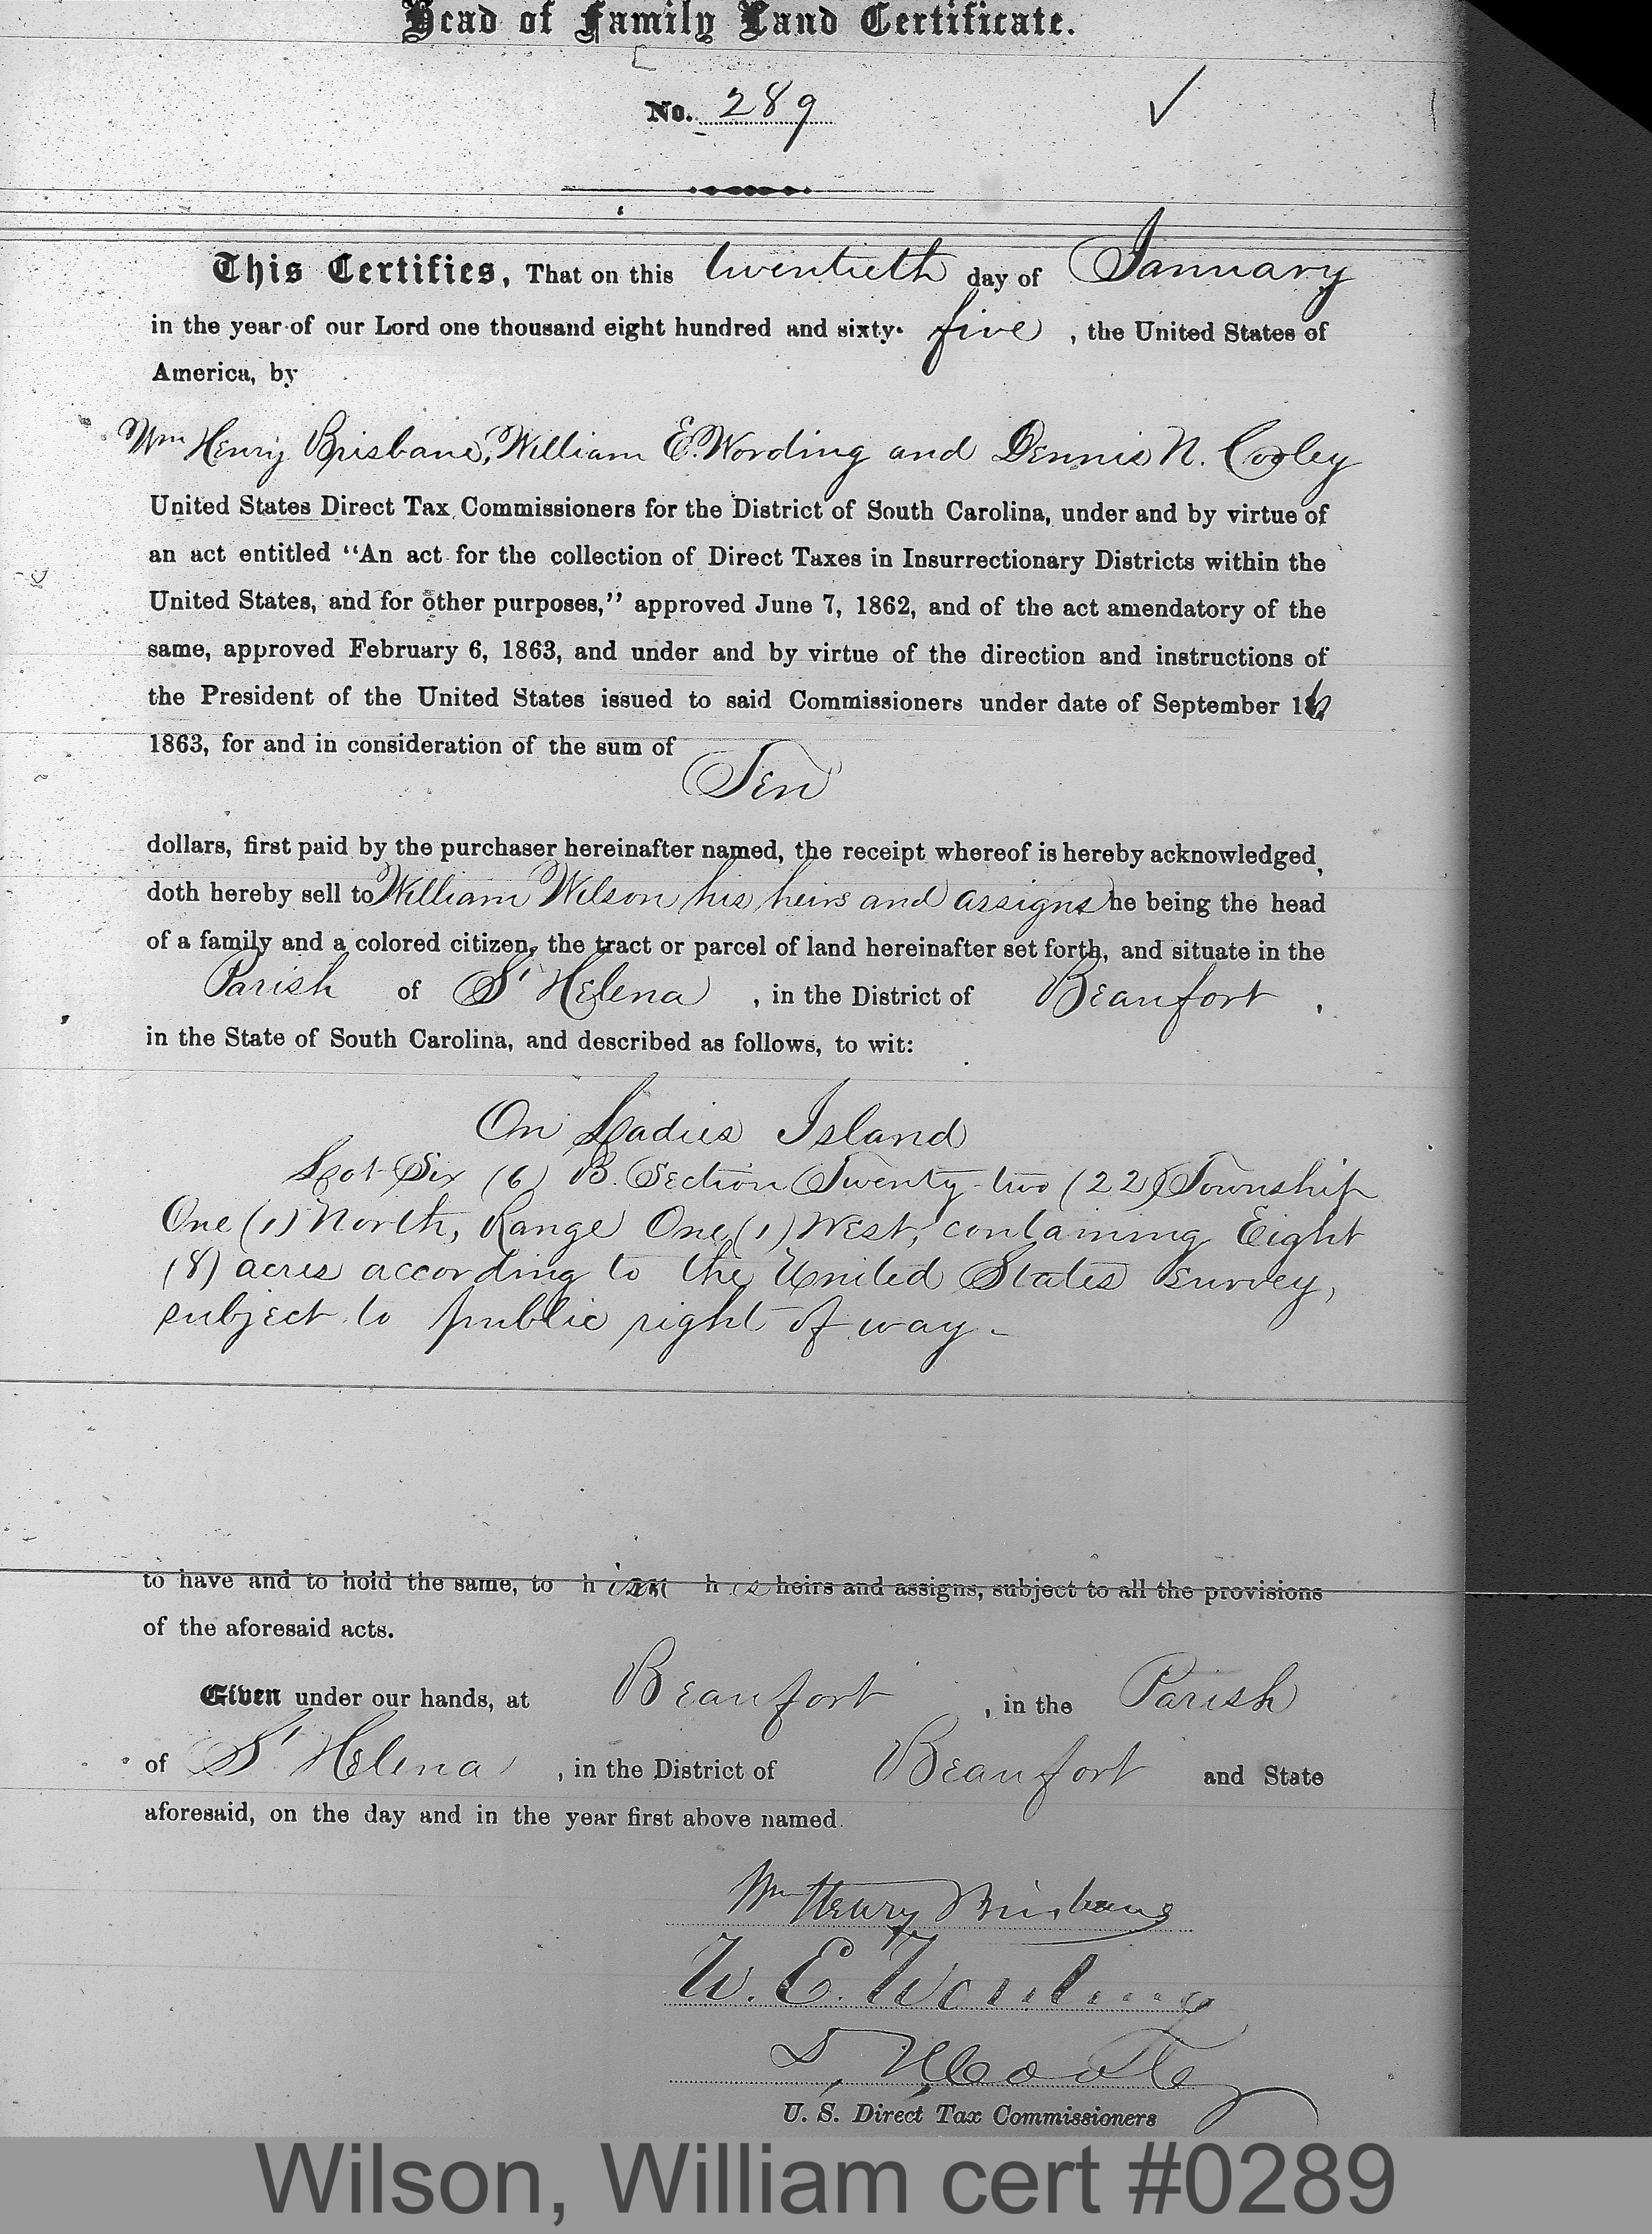 Head of Family Land Certificate.
No. 289
This Certifies, That on this twentieth day of January
in the year of our Lord one thousand eight hundred and sixty-five, the United States of
America, by
Wm Henry Brisbane, William E. Wording and Dennis N. Cooley
United States Direct Tax Commissioners for the District of South Carolina, under and by virtue of
an act entitled "An act for the collection of Direct Taxes in Insurrectionary Districts within the
United States, and for other purposes," approved June 7, 1862, and of the act amendatory of the
same, approved February 6, 1863, and under and by virtue of the direction and instructions of
the President of the United States issued to said Commissioners under date of September 16
1863, for and in consideration of the sum of
Ten
dollars, first paid by the purchaser hereinafter named, the receipt whereof is hereby acknowledged,
doth hereby sell to William Wilson his heirs and assigns he being the head
of a family and a colored citizen, the tract or parcel of land hereinafter set forth, and situate in the
Parish of St Helena, in the District of Beaufort,
in the State of South Carolina, and described as follows, to wit:
On Ladies Island
Lot Six (6) B. Section Twenty-two (22) Township
One (1) North, Range One (1) West, containing Eight
(8) acres according to the United States survey,
subject to public right of way -
to have and to hold the same, to him his heirs and assigns, subject to all the provisions
of the aforesaid acts.
Given under our hands, at Beaufort, in the Parish
of St Helena, in the District of Beaufort and State
aforesaid, on the day and in the year first above named.
Wm Henry Brisbane
W. E. Wording
D. N. Cooley
U. S. Direct Tax Commissioners
Wilson, William cert #0289